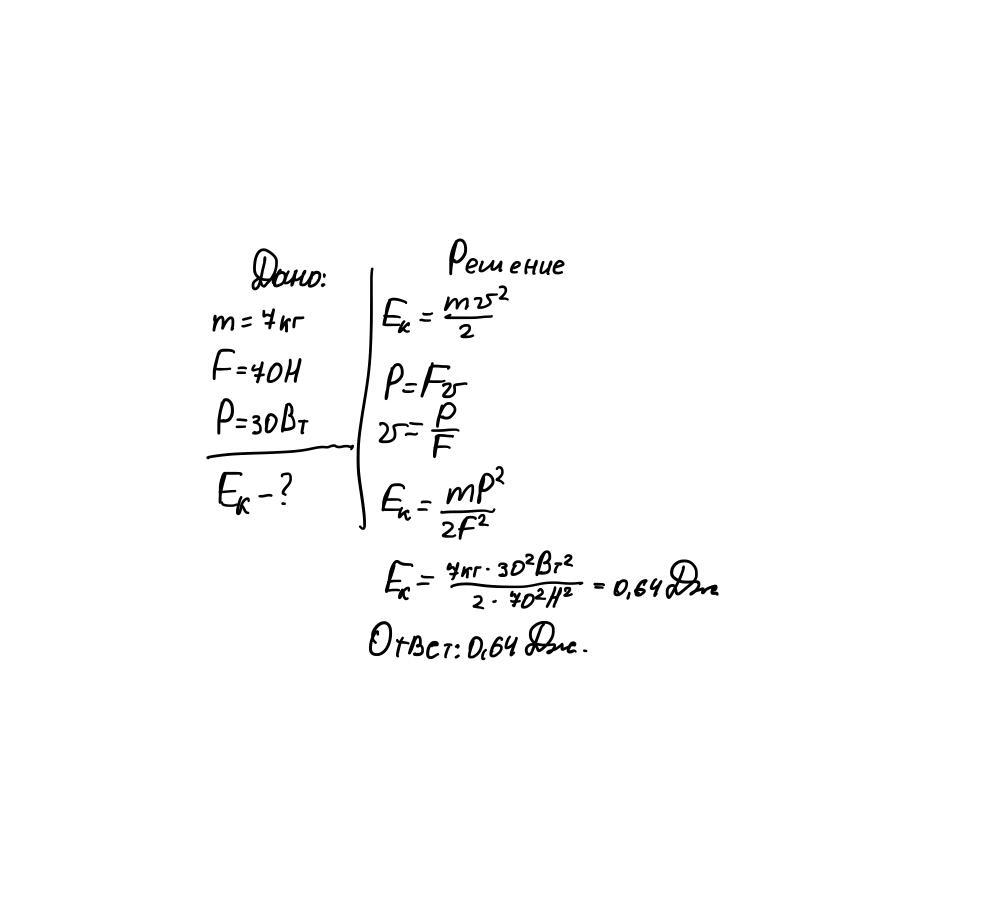 Дано:
m = 7кг
F = 70Н
P = 30Вт
Eк – ?
Решение
Eк = mv²/2
P = Fv
v = P/F
Eк = mP²/2F²
Eк = 7кг · 30²Вт²/2 · 70²Н² = 0,64 Дж
Ответ: 0,64 Дж.